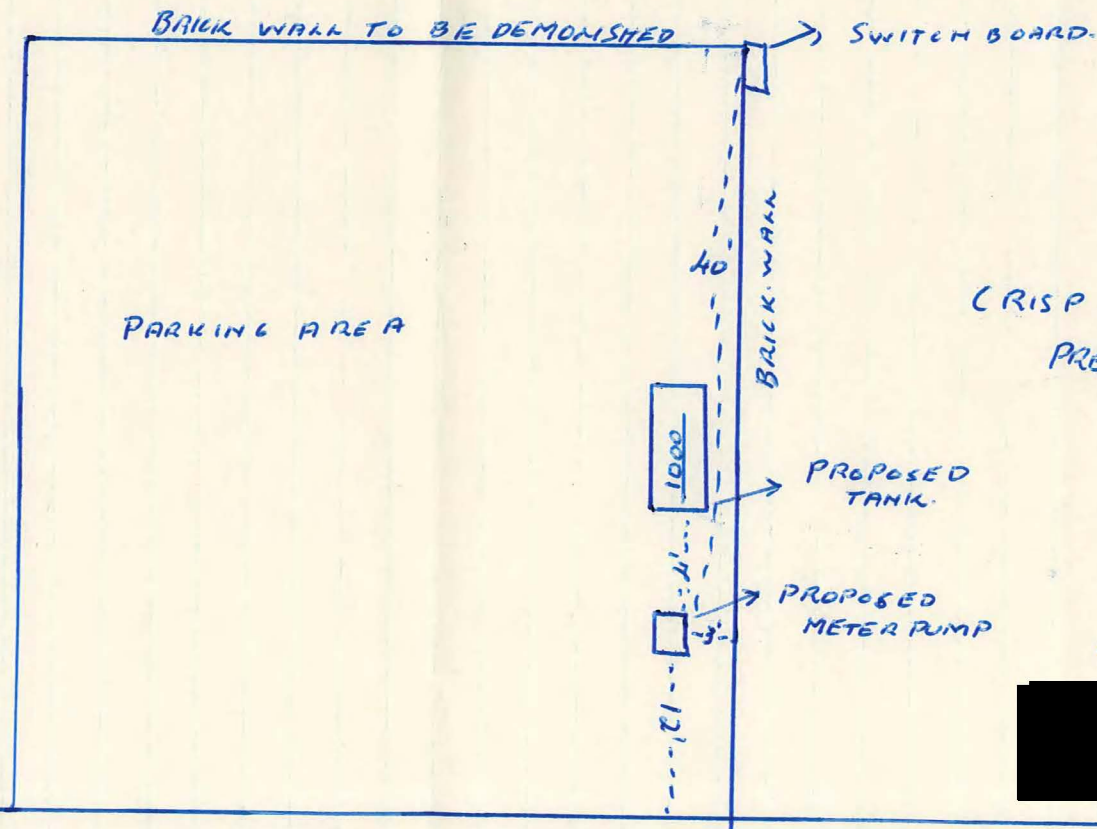 BRICK WALL TO BE DEMOLISHED
SWITCH BOARD.
40
BRICK WALL
CRISP
PARKING AREA
PRE
1000
PROPOSED
TANK.
4'
PROPOSED
METER PUMP
3'
12'